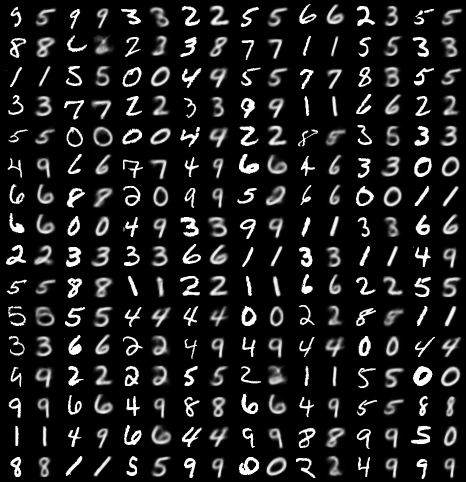 9 5 9 9 3 3 2 2 5 5 6 6 2 3 5 5
8 8 6 2 2 3 8 7 7 1 1 5 5 3 3
1 1 5 5 0 0 4 9 5 5 7 7 8 3 5 5
3 3 7 7 2 2 3 3 9 9 1 1 6 6 2 2
5 5 0 0 0 0 4 9 2 2 8 3 5 3 3
4 9 6 6 7 7 4 9 6 6 4 6 3 3 0 0
6 6 8 8 2 0 9 9 5 2 6 6 0 0 1 1
6 6 0 0 4 9 3 3 9 9 1 1 3 3 6 6
2 2 3 3 3 3 6 6 1 1 3 3 1 1 4 9
5 5 8 8 1 1 2 2 1 1 6 6 2 2 5 5
5 5 5 5 4 4 4 4 0 0 2 2 8 8 1 1
3 3 6 6 2 2 4 9 4 9 4 4 0 0 4 4
9 9 2 2 2 2 5 5 2 1 1 5 5 0 0
9 9 6 6 4 9 8 8 6 6 4 9 5 5 8 8
1 1 4 9 6 6 4 4 9 9 8 8 9 9 5 0
8 8 1 1 5 5 9 9 0 0 2 2 4 9 9 9